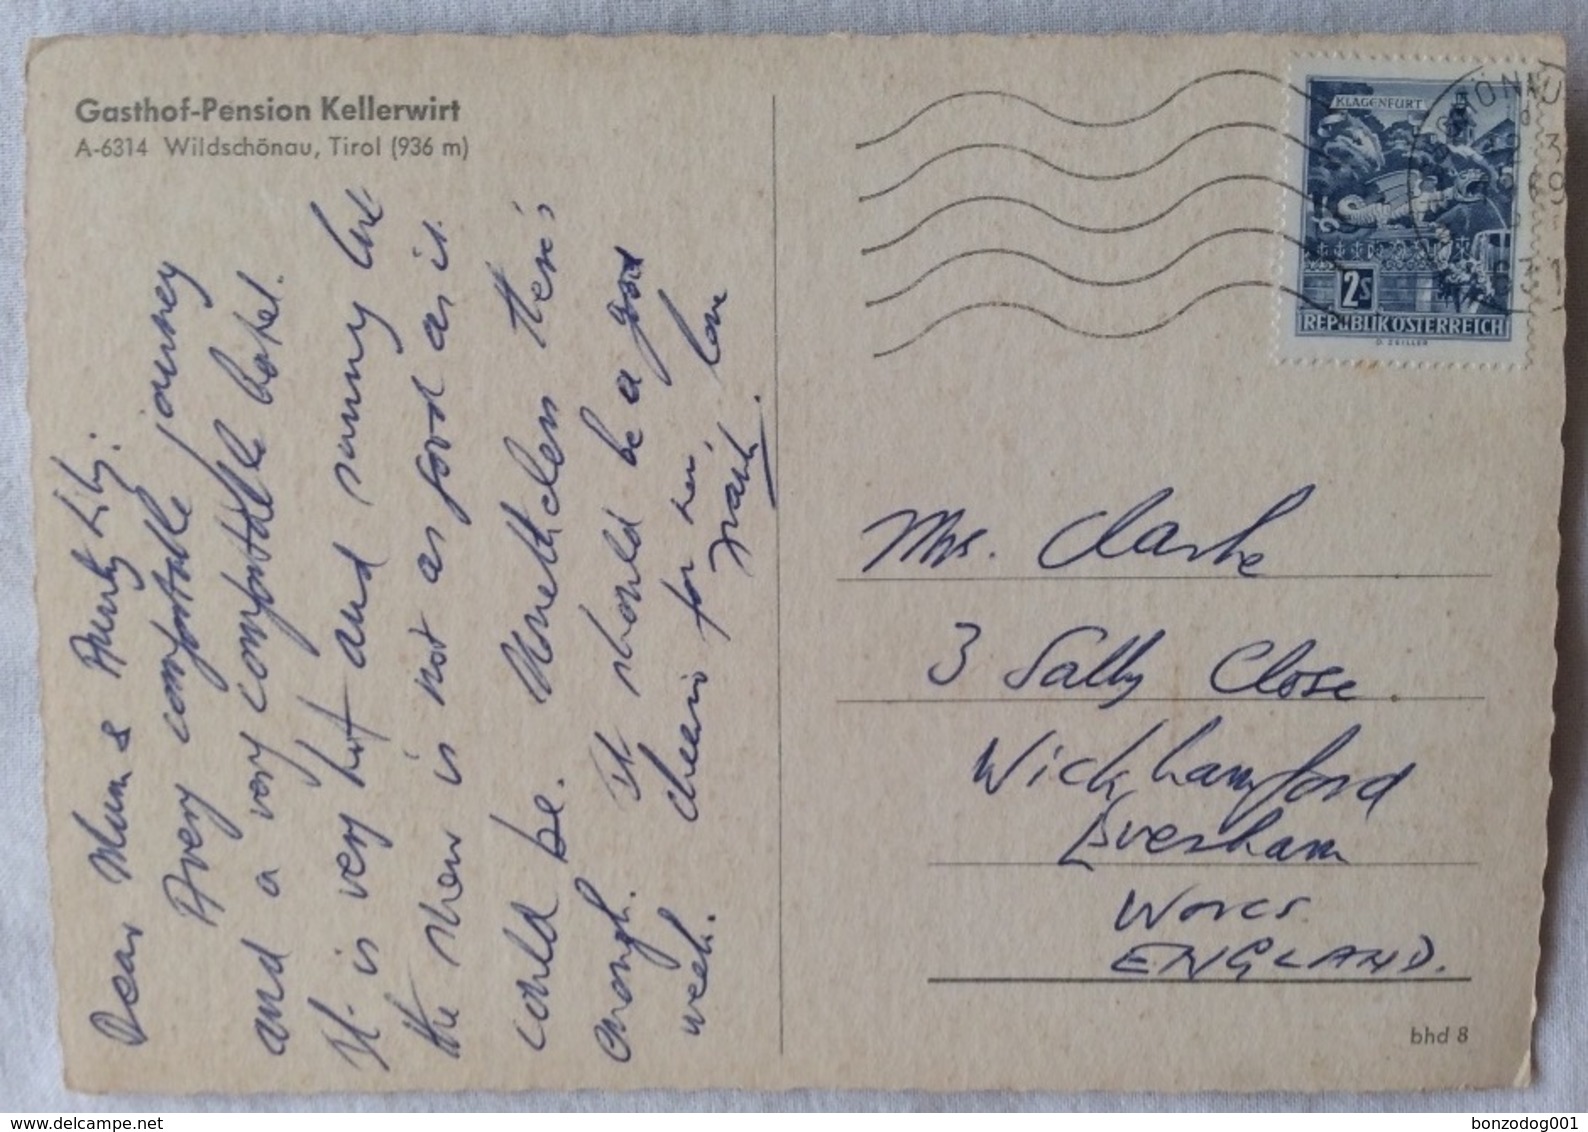 Gasthof-Pension Kellerwirt
A-6314 Wildschönau, Tirol (936 m)
Dear Mum & Aunty Lily.
A very comfortable journey
and a very comfortable hotel.
It is very hot and sunny but
the snow is not as good as it
could be. Nonetheless there's
enough. It should be a good
week. Cheerio for now, love
KLAGENFURT
2S
REPUBLIK ÖSTERREICH
Mrs. Clarke
3 Sally Close
Wickhamford
Evesham
Worcs
ENGLAND.
bhd 8
delcampe.net
bonzodog001